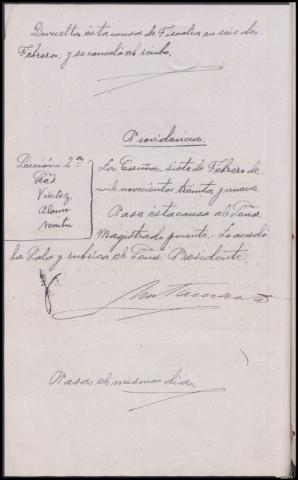 Devuelta esta causa de Fiscalía en seis de
Febrero, y se canceló el recibo.
Providencia.
Sección 2ª
Vieitez
Alonso
La Coruña, siete de Febrero de
mil novecientos treinta y nueve.
Pase esta causa al Señor
Magistrado ponente. Lo acordó
la Sala y rubrica el Señor Presidente.
Pasa el mismo día.